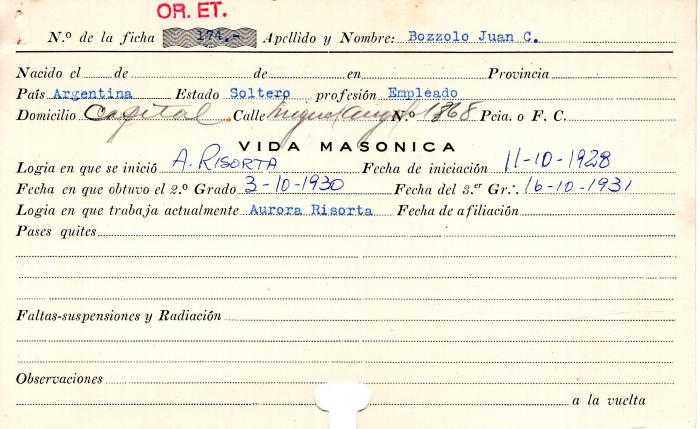 OR. ET.
N.º de la ficha 174.- Apellido y Nombre: Bozzolo Juan C.
Nacido el de de en Provincia
País Argentina Estado Soltero profesión Empleado
Domicilio Capital Calle Miguel Angel N.º 1868 Pcia. o F. C.
VIDA MASONICA
Logia en que se inició A. RISORTA Fecha de iniciación 11-10-1928
Fecha en que obtuvo el 2.º Grado 3-10-1930 Fecha del 3.er Gr.·. 16-10-1931
Logia en que trabaja actualmente Aurora Risorta Fecha de afiliación
Pases quites
Faltas-suspensiones y Radiación
Observaciones
a la vuelta